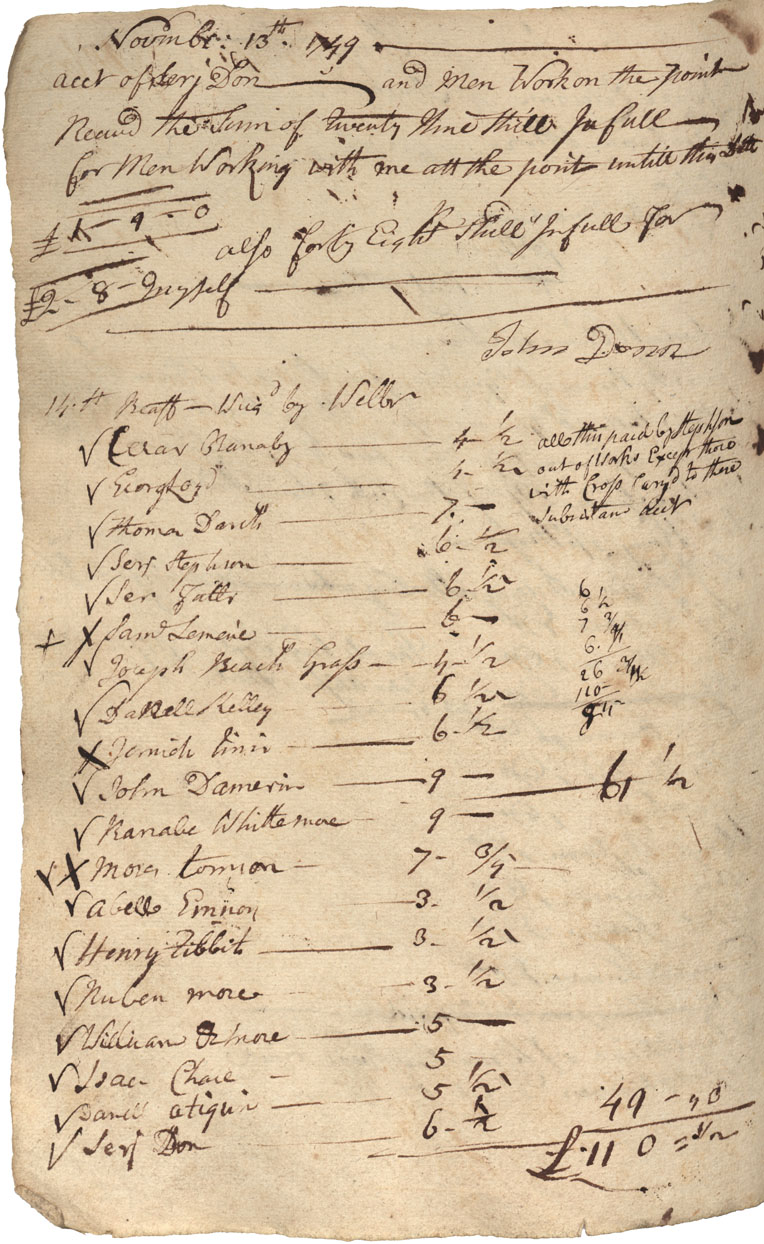 Novmbr: 13th 1749
acct of Serj Don and Men Work on the point
Receivd the Sum of twenty Nine Shill Infull
for Men Working with me att the point untill this Date
£1-9-0
also forty Eight Shill Infull for
£2-8- myself
John Donn
14th Beaff Wig'd by Weller
Cesar Ranaby 4 1/2
all this paid by Stephson
Georg Loyd 4 1/2
out of Works Except those
with Cross Caryd to there
Subsistans acct
Thomas Darch 7
Serj Stephson 6 1/2
Ser Falls 6 1/2
+ X Saml 6
Joseph Beach Grass 4 1/2
6 1/2
6 1/2
7 3/4
6
26
110
Daniell Kelley 6 1/2
X 6 1/2
John Damerin 9
61 1/2
Ranabe Whittemore 9
X Moses tomson 7 3/4
Abell 3 1/2
Henry Tibbit 3 1/2
Ruben more 3 1/2
William more 5
Isac Chace 5
Daniell atiquin 5 1/2
49
Serj Don 6 1/2
£ 110 = 1/2